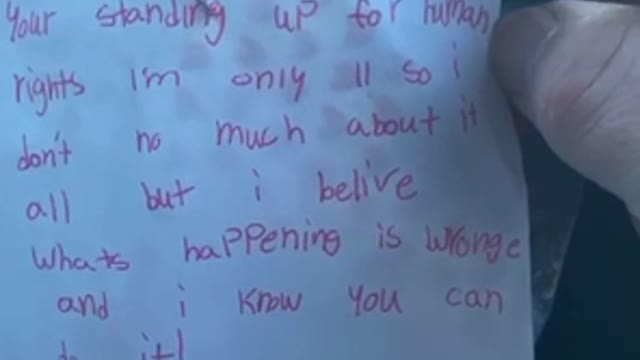 Your standing up for human
rights I'm only 11 so i
don't no much about it
all but i belive
whats happening is wronge
and i know you can
do it!